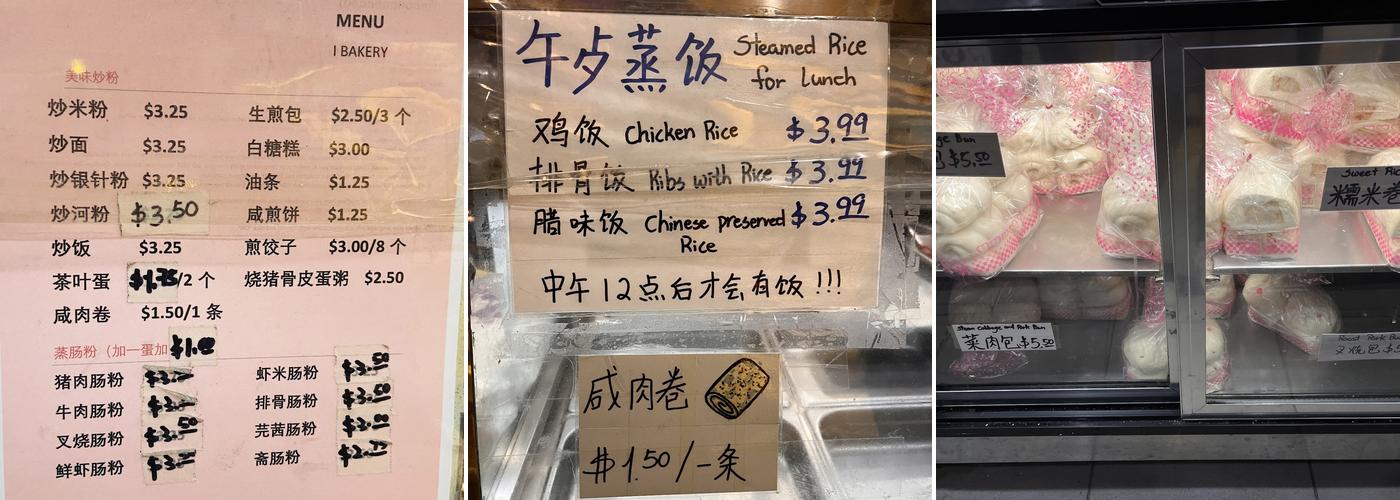 MENU
I BAKERY
美味炒粉
炒米粉 $3.25 生煎包 $2.50/3 个
炒面 $3.25 白糖糕 $3.00
炒银针粉 $3.25 油条 $1.25
炒河粉 $3.50 咸煎饼 $1.25
炒饭 $3.25 煎饺子 $3.00/8 个
茶叶蛋 /2 个 烧猪骨皮蛋粥 $2.50
咸肉卷 $1.50/1 条
蒸肠粉（加一蛋加
猪肉肠粉 虾米肠粉 $3.50
牛肉肠粉 排骨肠粉 $3.50
叉烧肠粉 $3.50 芫茜肠粉
鲜虾肠粉 斋肠粉
午歺蒸饭 Steamed Rice
for Lunch
鸡饭 Chicken Rice $3.99
排骨饭 Ribs with Rice $3.99
腊味饭 Chinese preserved $3.99
Rice
中午12点后才会有饭!!!
咸肉卷
$1.50/一条
Bun
$5.50
Steam Cabbage and Pork Bun
菜肉包$5.50
Sweet
糯米卷
Roast Pork
叉烧包